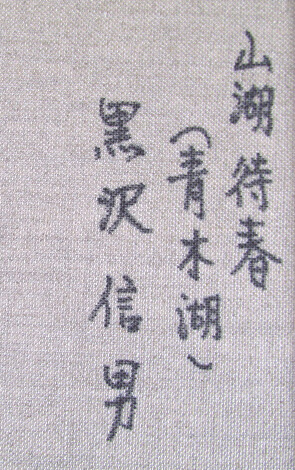 山湖待春
(青木湖)
黒沢信男